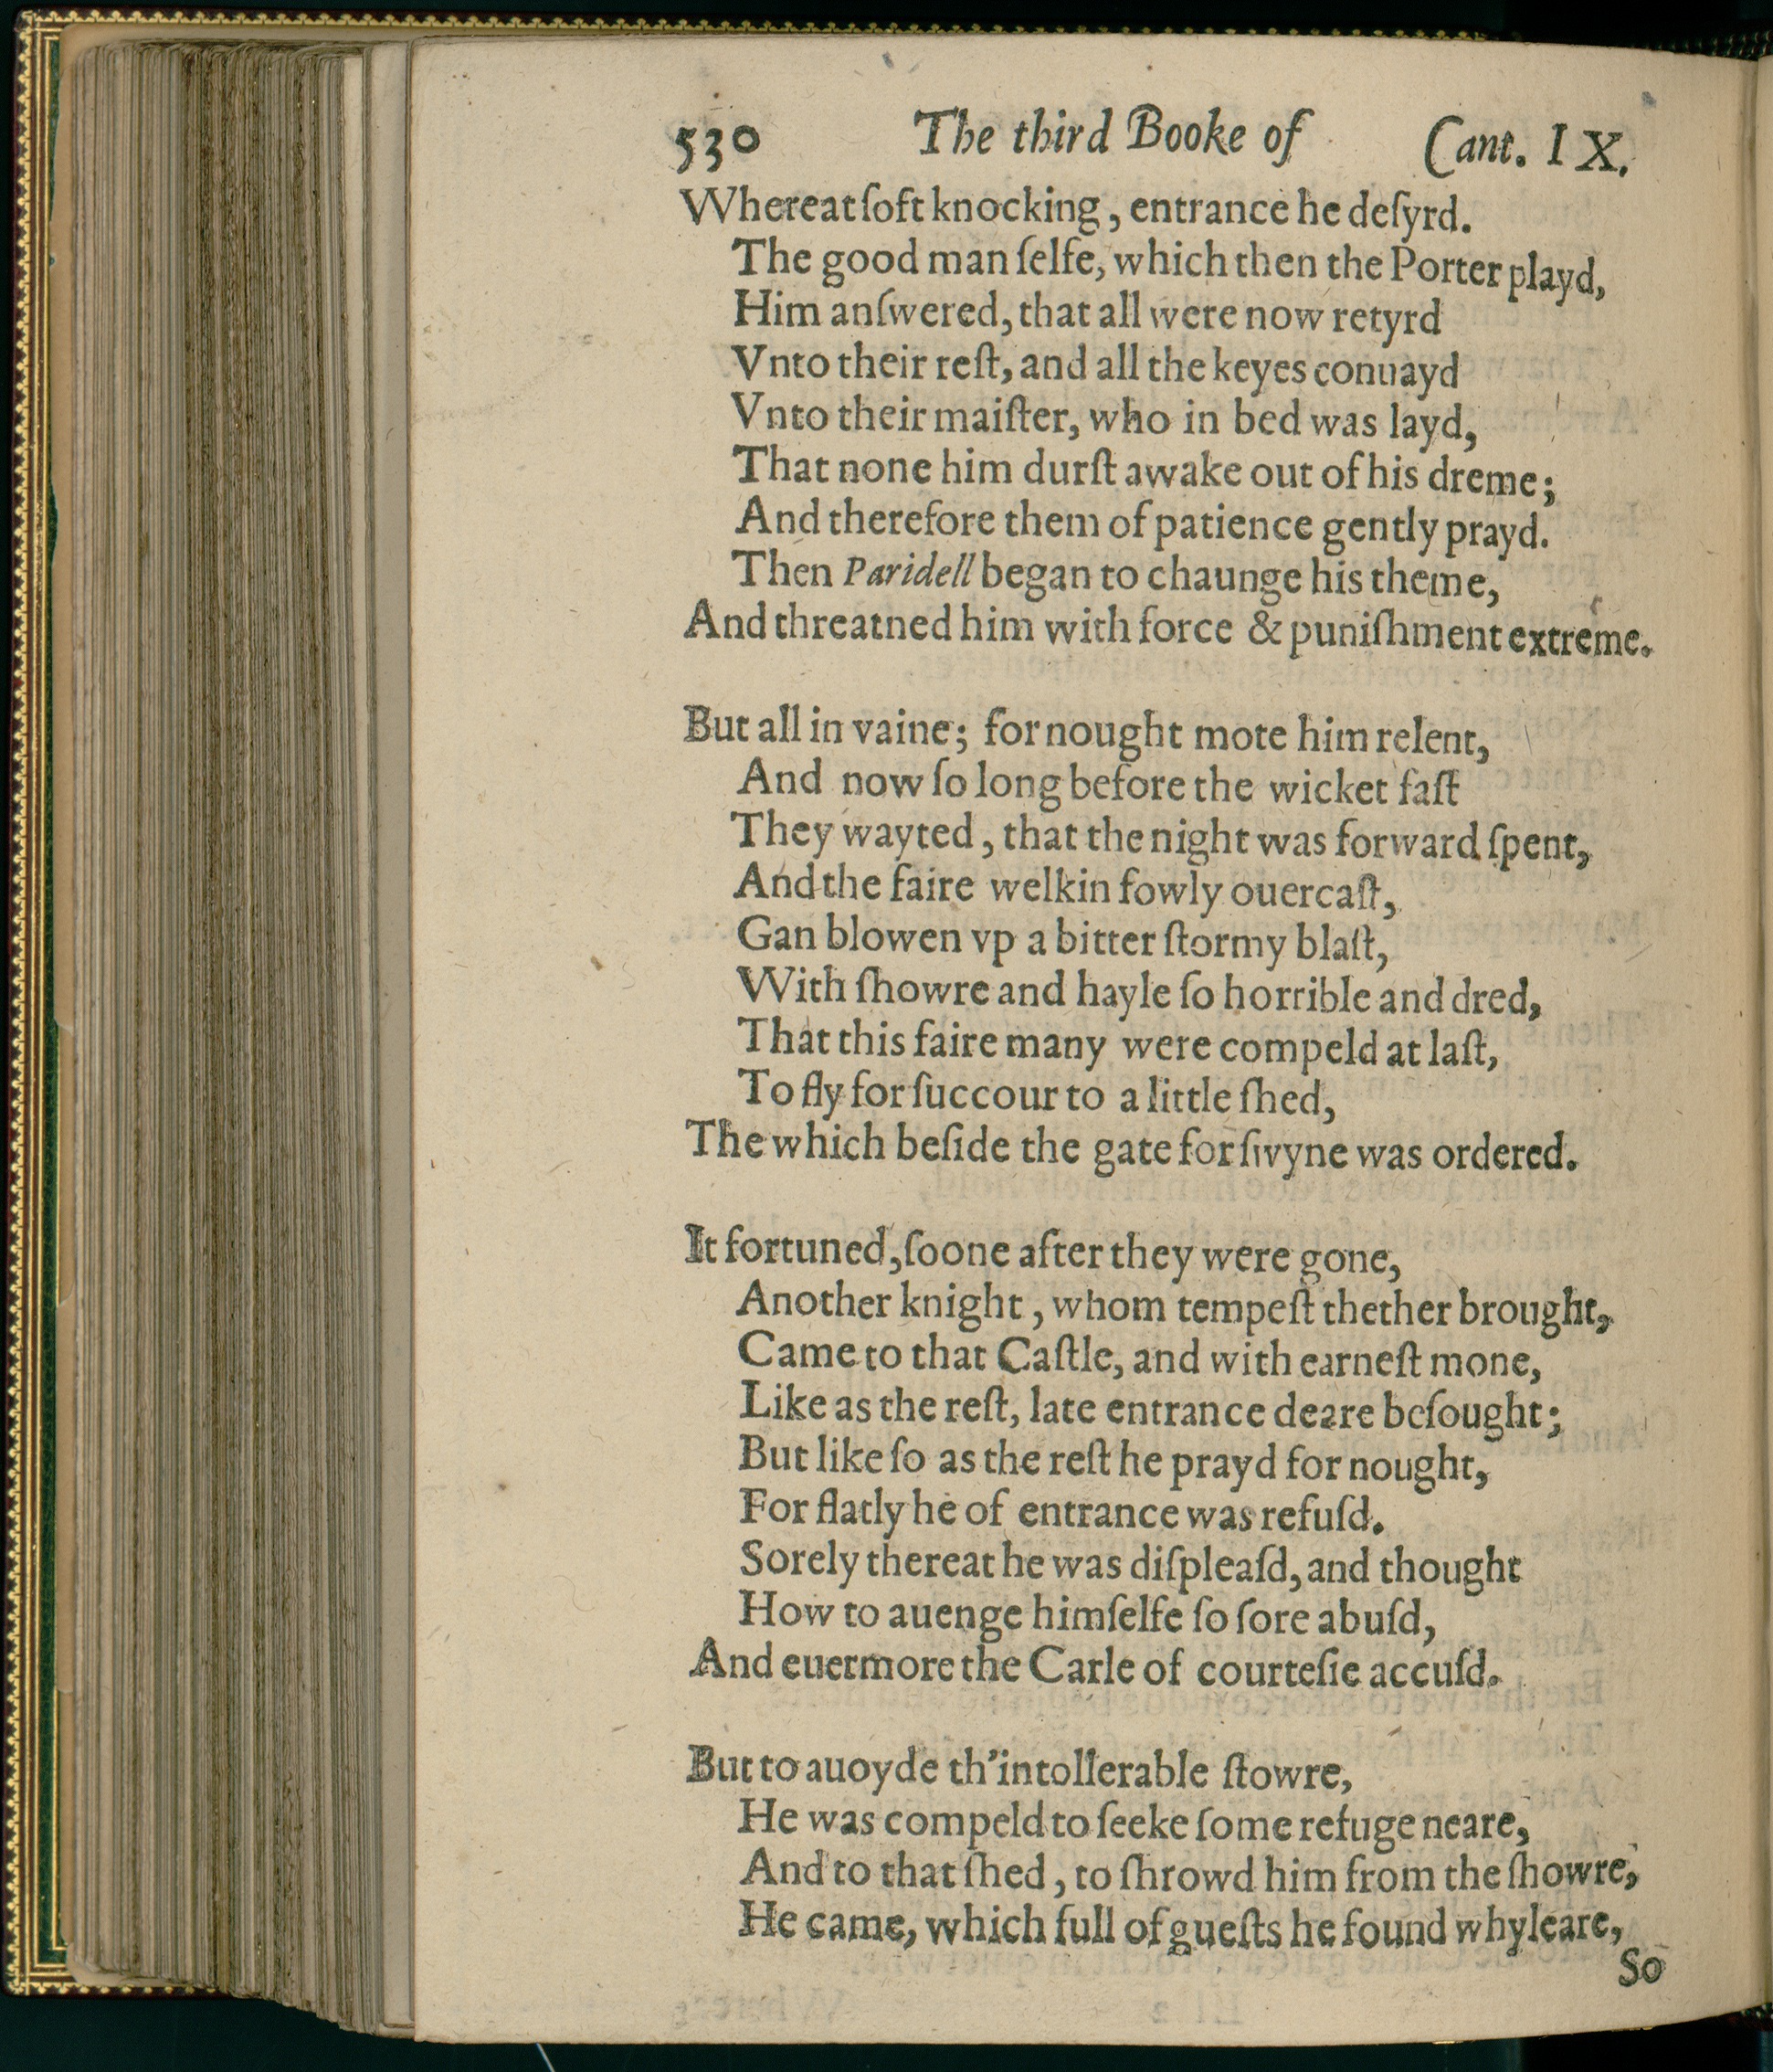 530 The third Booke of Cant. IX.
Whereat ſoft knocking, entrance he deſyrd.
The good man ſelfe, which then the Porter playd,
Him anſwered, that all were now retyrd
Vnto their reſt, and all the keyes conuayd
Vnto their maiſter, who in bed was layd,
That none him durſt awake out of his dreme;
And therefore them of patience gently prayd.
Then Paridell began to chaunge his theme,
And threatned him with force & puniſhment extreme.
But all in vaine; for nought mote him relent,
And now ſo long before the wicket faſt
They wayted, that the night was forward ſpent,
And the faire welkin fowly ouercaſt,
Gan blowen vp a bitter ſtormy blaſt,
With ſhowre and hayle ſo horrible and dred,
That this faire many were compeld at laſt,
To fly for ſuccour to a little ſhed,
The which beſide the gate for ſwyne was ordered.
It fortuned, ſoone after they were gone,
Another knight, whom tempeſt thether brought,
Came to that Caſtle, and with earneſt mone,
Like as the reſt, late entrance deare beſought;
But like ſo as the reſt he prayd for nought,
For flatly he of entrance was refuſd.
Sorely thereat he was diſpleaſd, and thought
How to auenge himſelfe ſo ſore abuſd,
And euermore the Carle of courteſie accuſd.
But to auoyde th'intollerable ſtowre,
He was compeld to ſeeke ſome refuge neare,
And to that ſhed, to ſhrowd him from the ſhowre,
He came, which full of gueſts he found whyleare,
So